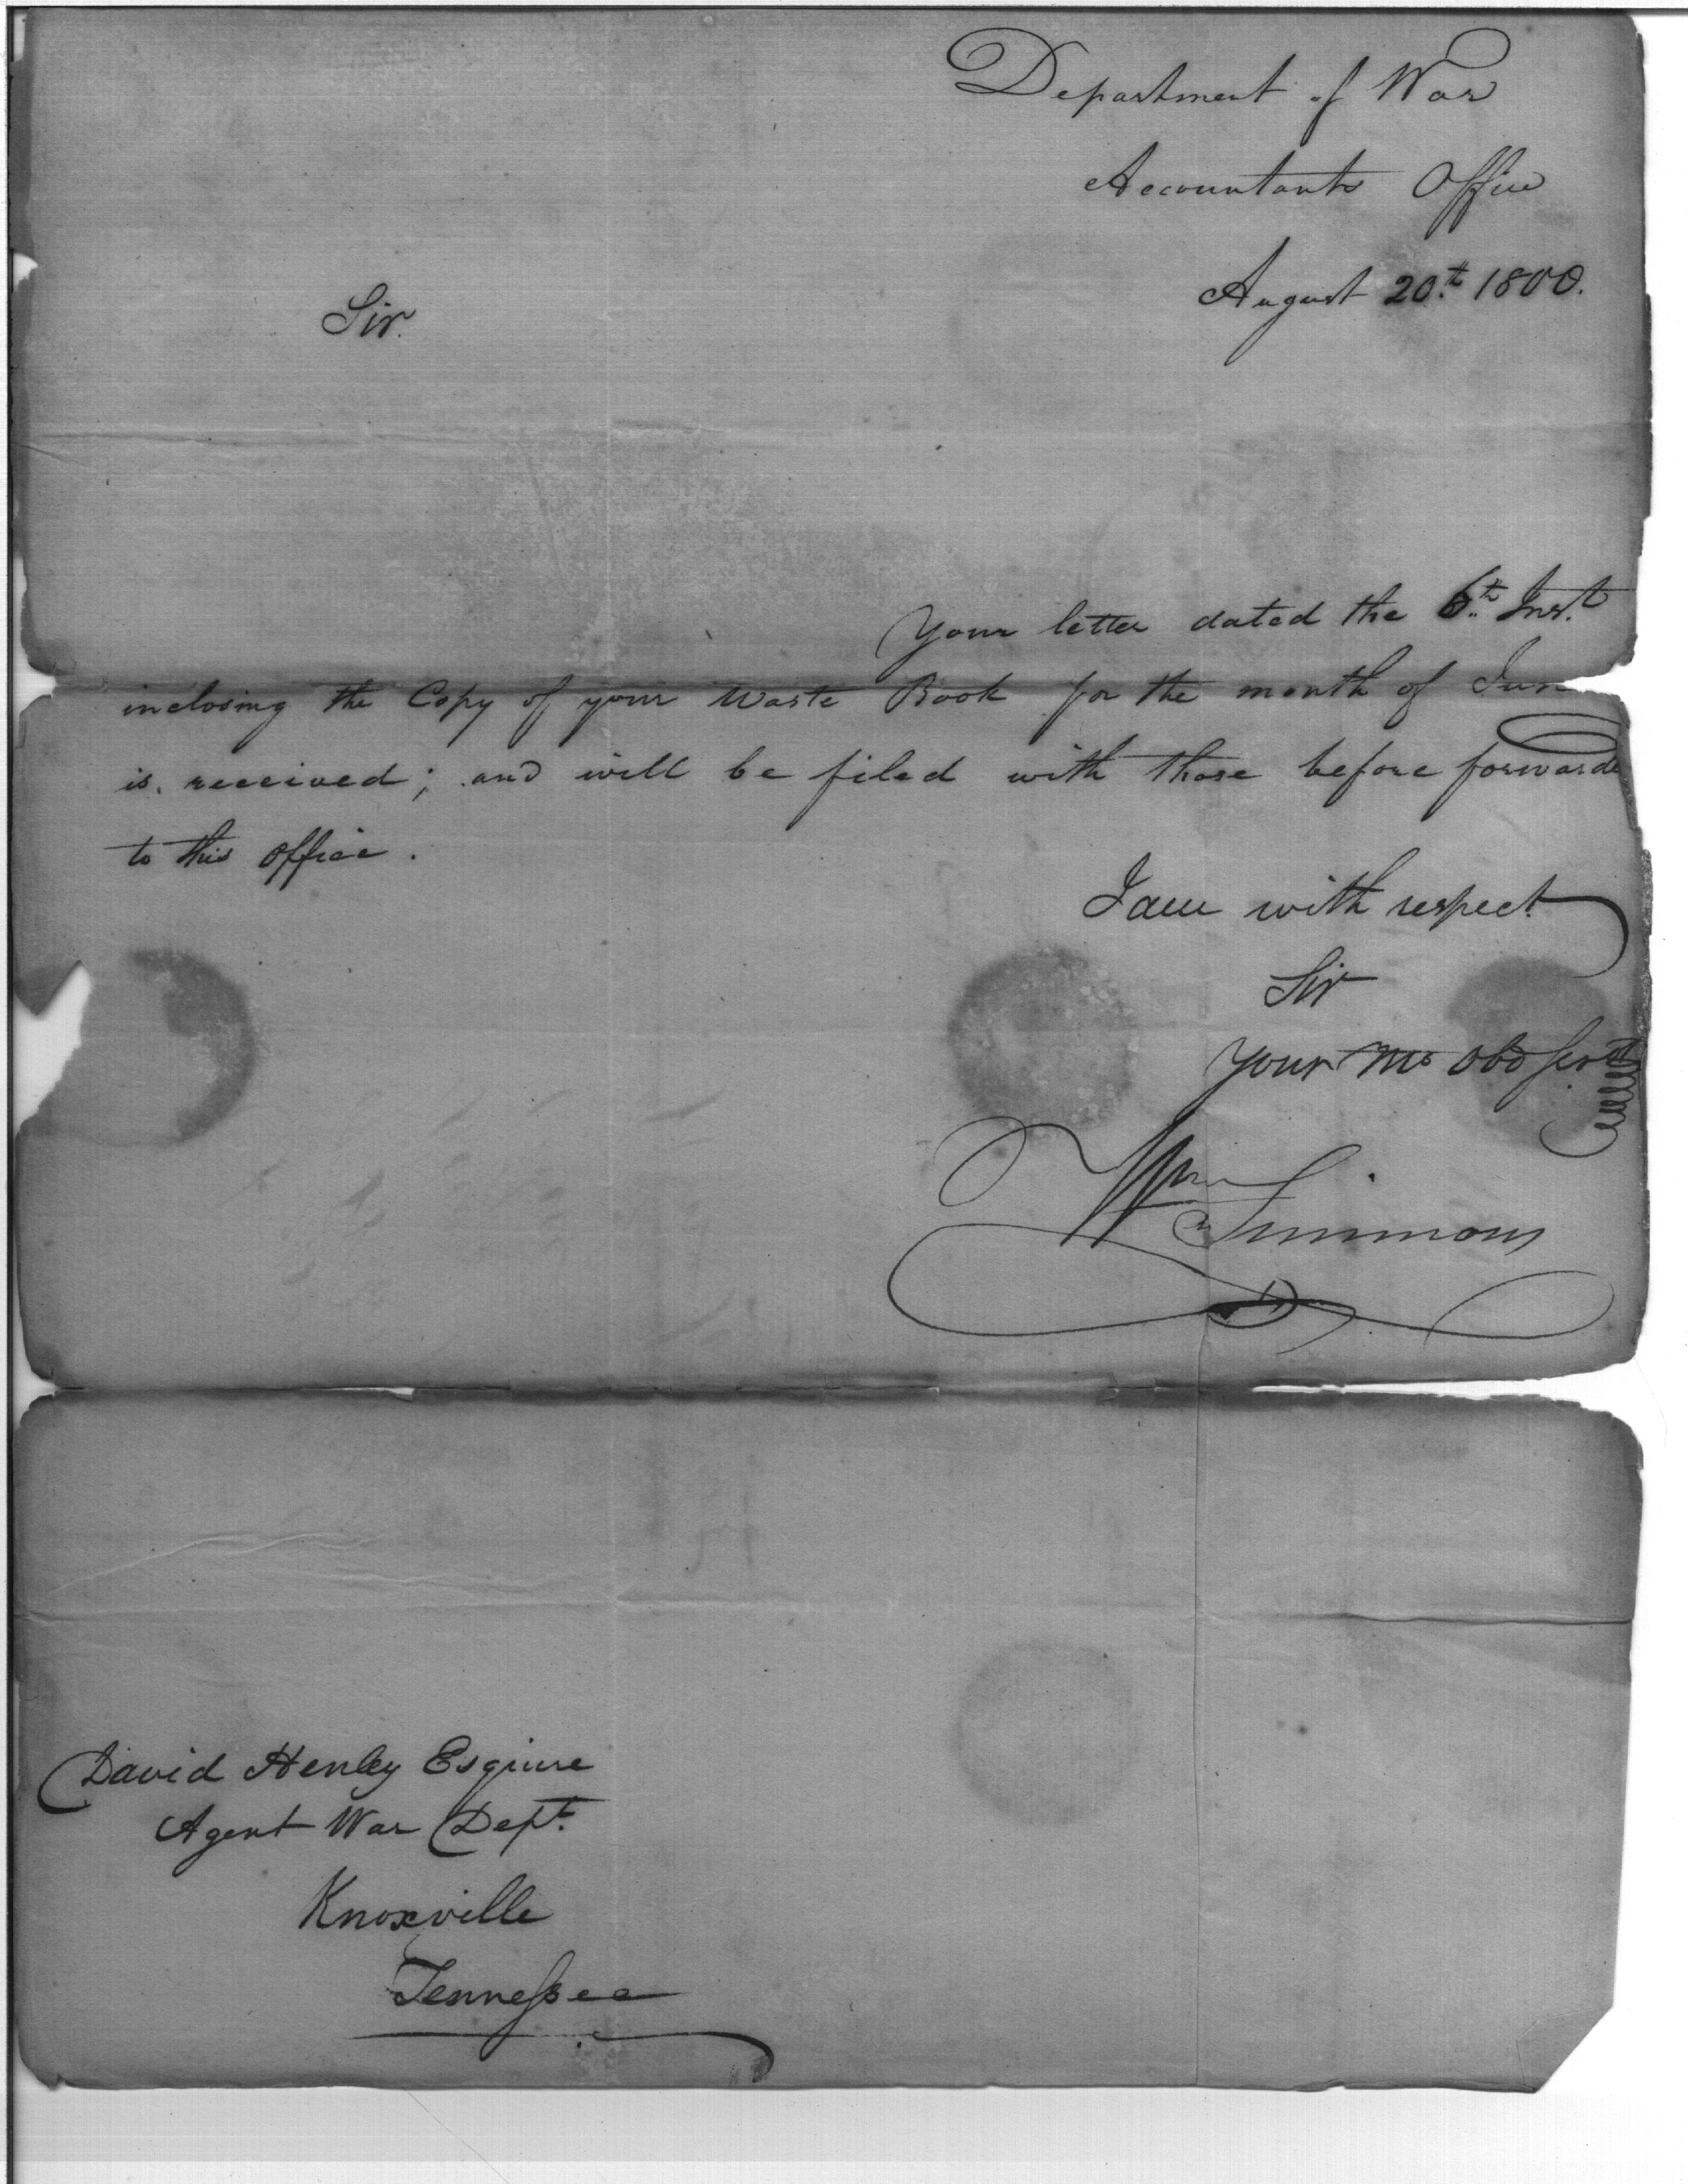 Department of War
Accountants Office
August 20.th 1800.
Sir.
Your letter dated the 6.th Inst.
inclosing the Copy of your Waste Book for the month of June
is received; and will be filed with those before forwarde
to this office.
I am with respect
Sir
your Mo Obd Servt
Wm Simmons
David Henley Esquire
Agent War Dept.
Knoxville
Tennessee